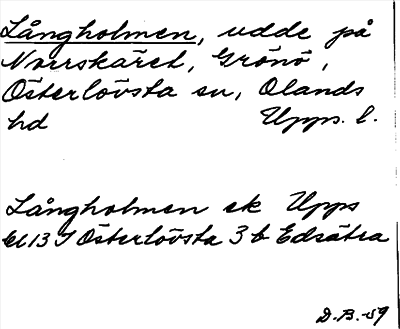 Långholmen, udde på
Norrskäret, Grönö,
Österlövsta sn, Olands
hd Upps. l.
Långholmen ek Upps
Österlövsta 3 b Edsätra
D.B. -59